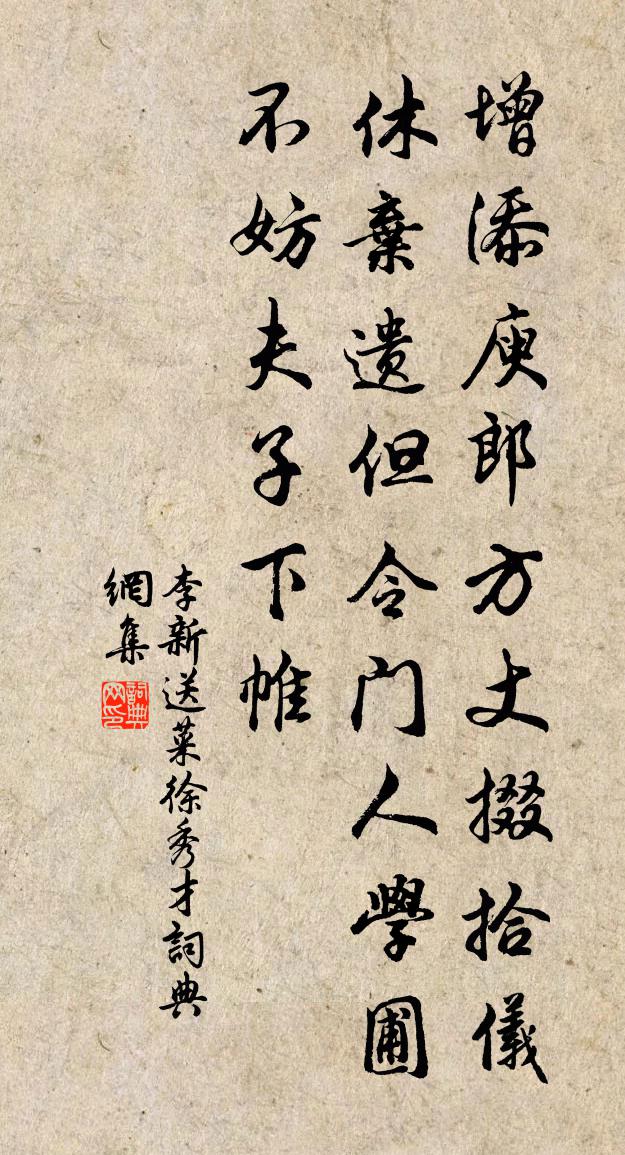 增添庾郎方丈掇拾儀
休棄遺但令門人學圃
不妨夫子下帷
李新送菜徐秀才詞典
網集
詞典
网印